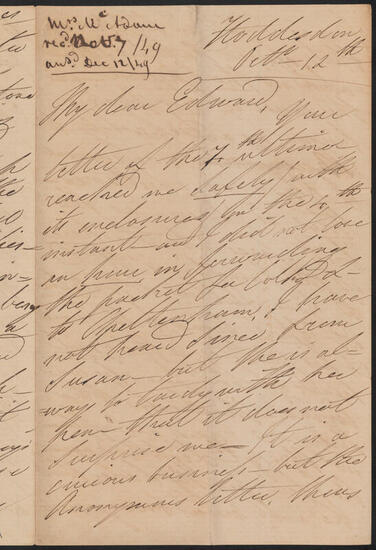 Mrs. McAdam
recd. Nov. 7/49
ansd. Dec 12/49
Hoddesdon
Octr. 12th
My dear Edward,
Your
letter of the 7th ultimo
reached me safely with
its enclosures on the 4th
instant and I did not lose
an hour in forwarding
the packet for Lady
to Cheltenham. I have
not heard since from
Susan - but she is al-
ways so lazy with her
pen - that it does not
surprise me - It is a
curious business - but the
Anonymous letter, thus